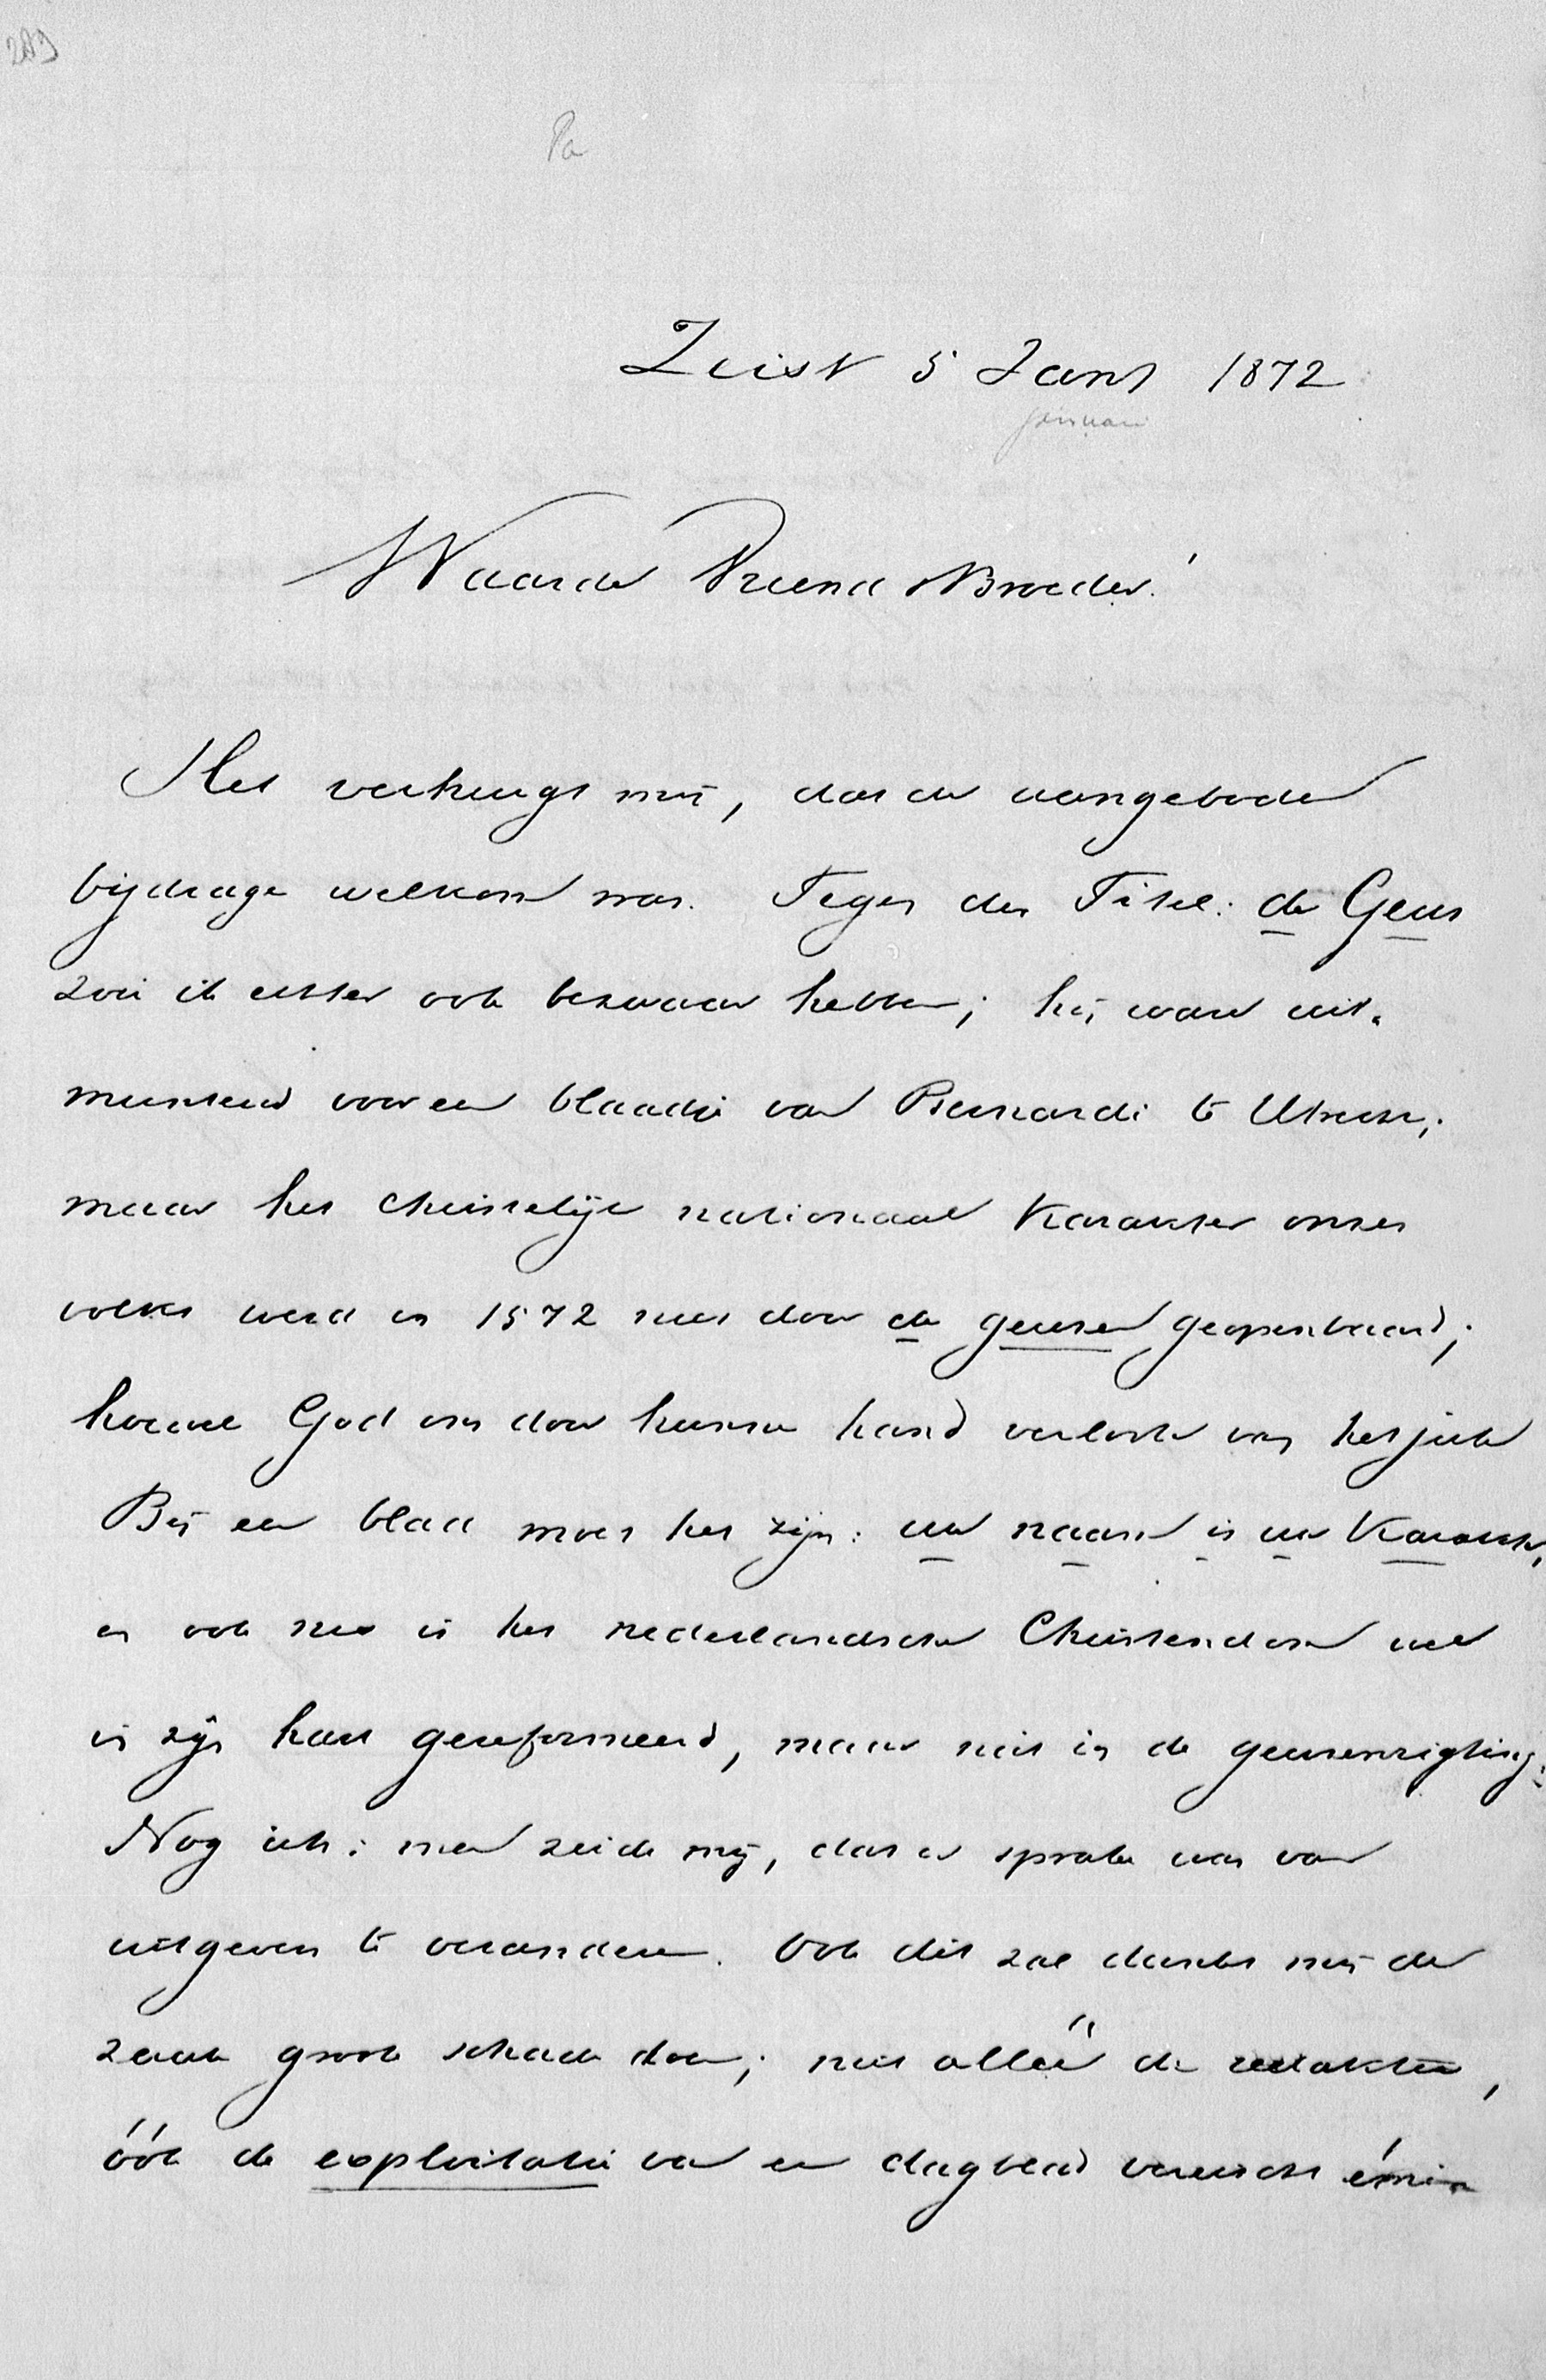 Zeist 5 Jan 1872
januari
Waarde Vriend & Broeder!
Het verheugt mij, dat de aangeboden
bijdrage welkom was. Tegen den Titel: de Geus
zou ik echter ook bezwaar hebben; hij ware uit-
muntend voor een blaadje van Bernardi te Utrecht;
maar het christelijk nationaal karakter onzes
volks werd in 1572 niet door de geusen geopenbaard;
hoewel God ons door hunne hand verloste van het juk
Bij een blad moet het zijn: uw naam is uw karakter,
en ook nu is het nederlandsche Christendom wel
in zijn hart gereformeerd, maar niet in de geusenrigting.
Nog iets: men zeide mij, dat er sprake was van
uitgever te veranderen. Ook dit zal dunkt mij de
zaak groote schade doen; niet alléén de redaktie,
óók de exploitatie van een dagblad vereischt